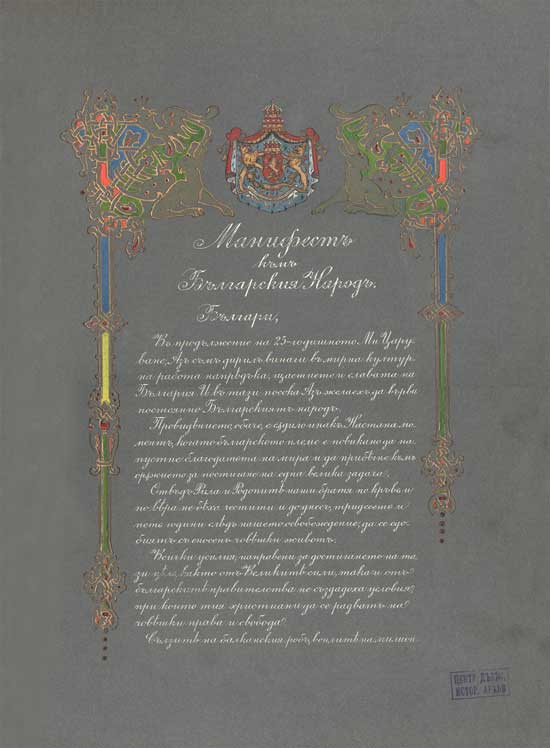 Манифестъ
къмъ
Българския Народъ.
Българи,
Въ продължение на 25-годишното Ми Цару-
ване, Азъ съмъ дирилъ винаги въ мирна култур-
на работа напрѣдъка, щастието и славата на
България. И въ тази посока Азъ желаехъ да върви
постоянно Българскиятъ народъ.
Провидѣнието, обаче, е сѫдило инакъ. Настѫпи мо-
ментъ, когато българското племе е повикано да на-
пустне благодатта на мира и да прибѣгне къмъ
орѫжието за постигане на една велика задача.
Отвъдъ Рила и Родопитѣ наши братя по кръвь и
по вѣра не бѣха честити и до днесъ, тридесеть и
петь години слѣдъ нашето освобождение, да се сдо-
биятъ съ сносенъ човѣшки животъ.
Всички усилия, направени за достигането на та-
зи цѣль, както отъ Великитѣ сили, така и отъ
българскитѣ правителства не създадоха условия,
при които тия христиани да се радватъ на
човѣшки права и свобода.
Сълзитѣ на балканския робъ, воплитѣ на милион-
ЦЕНТР. ДЪРЖ.
ИСТОР. АРХИВ